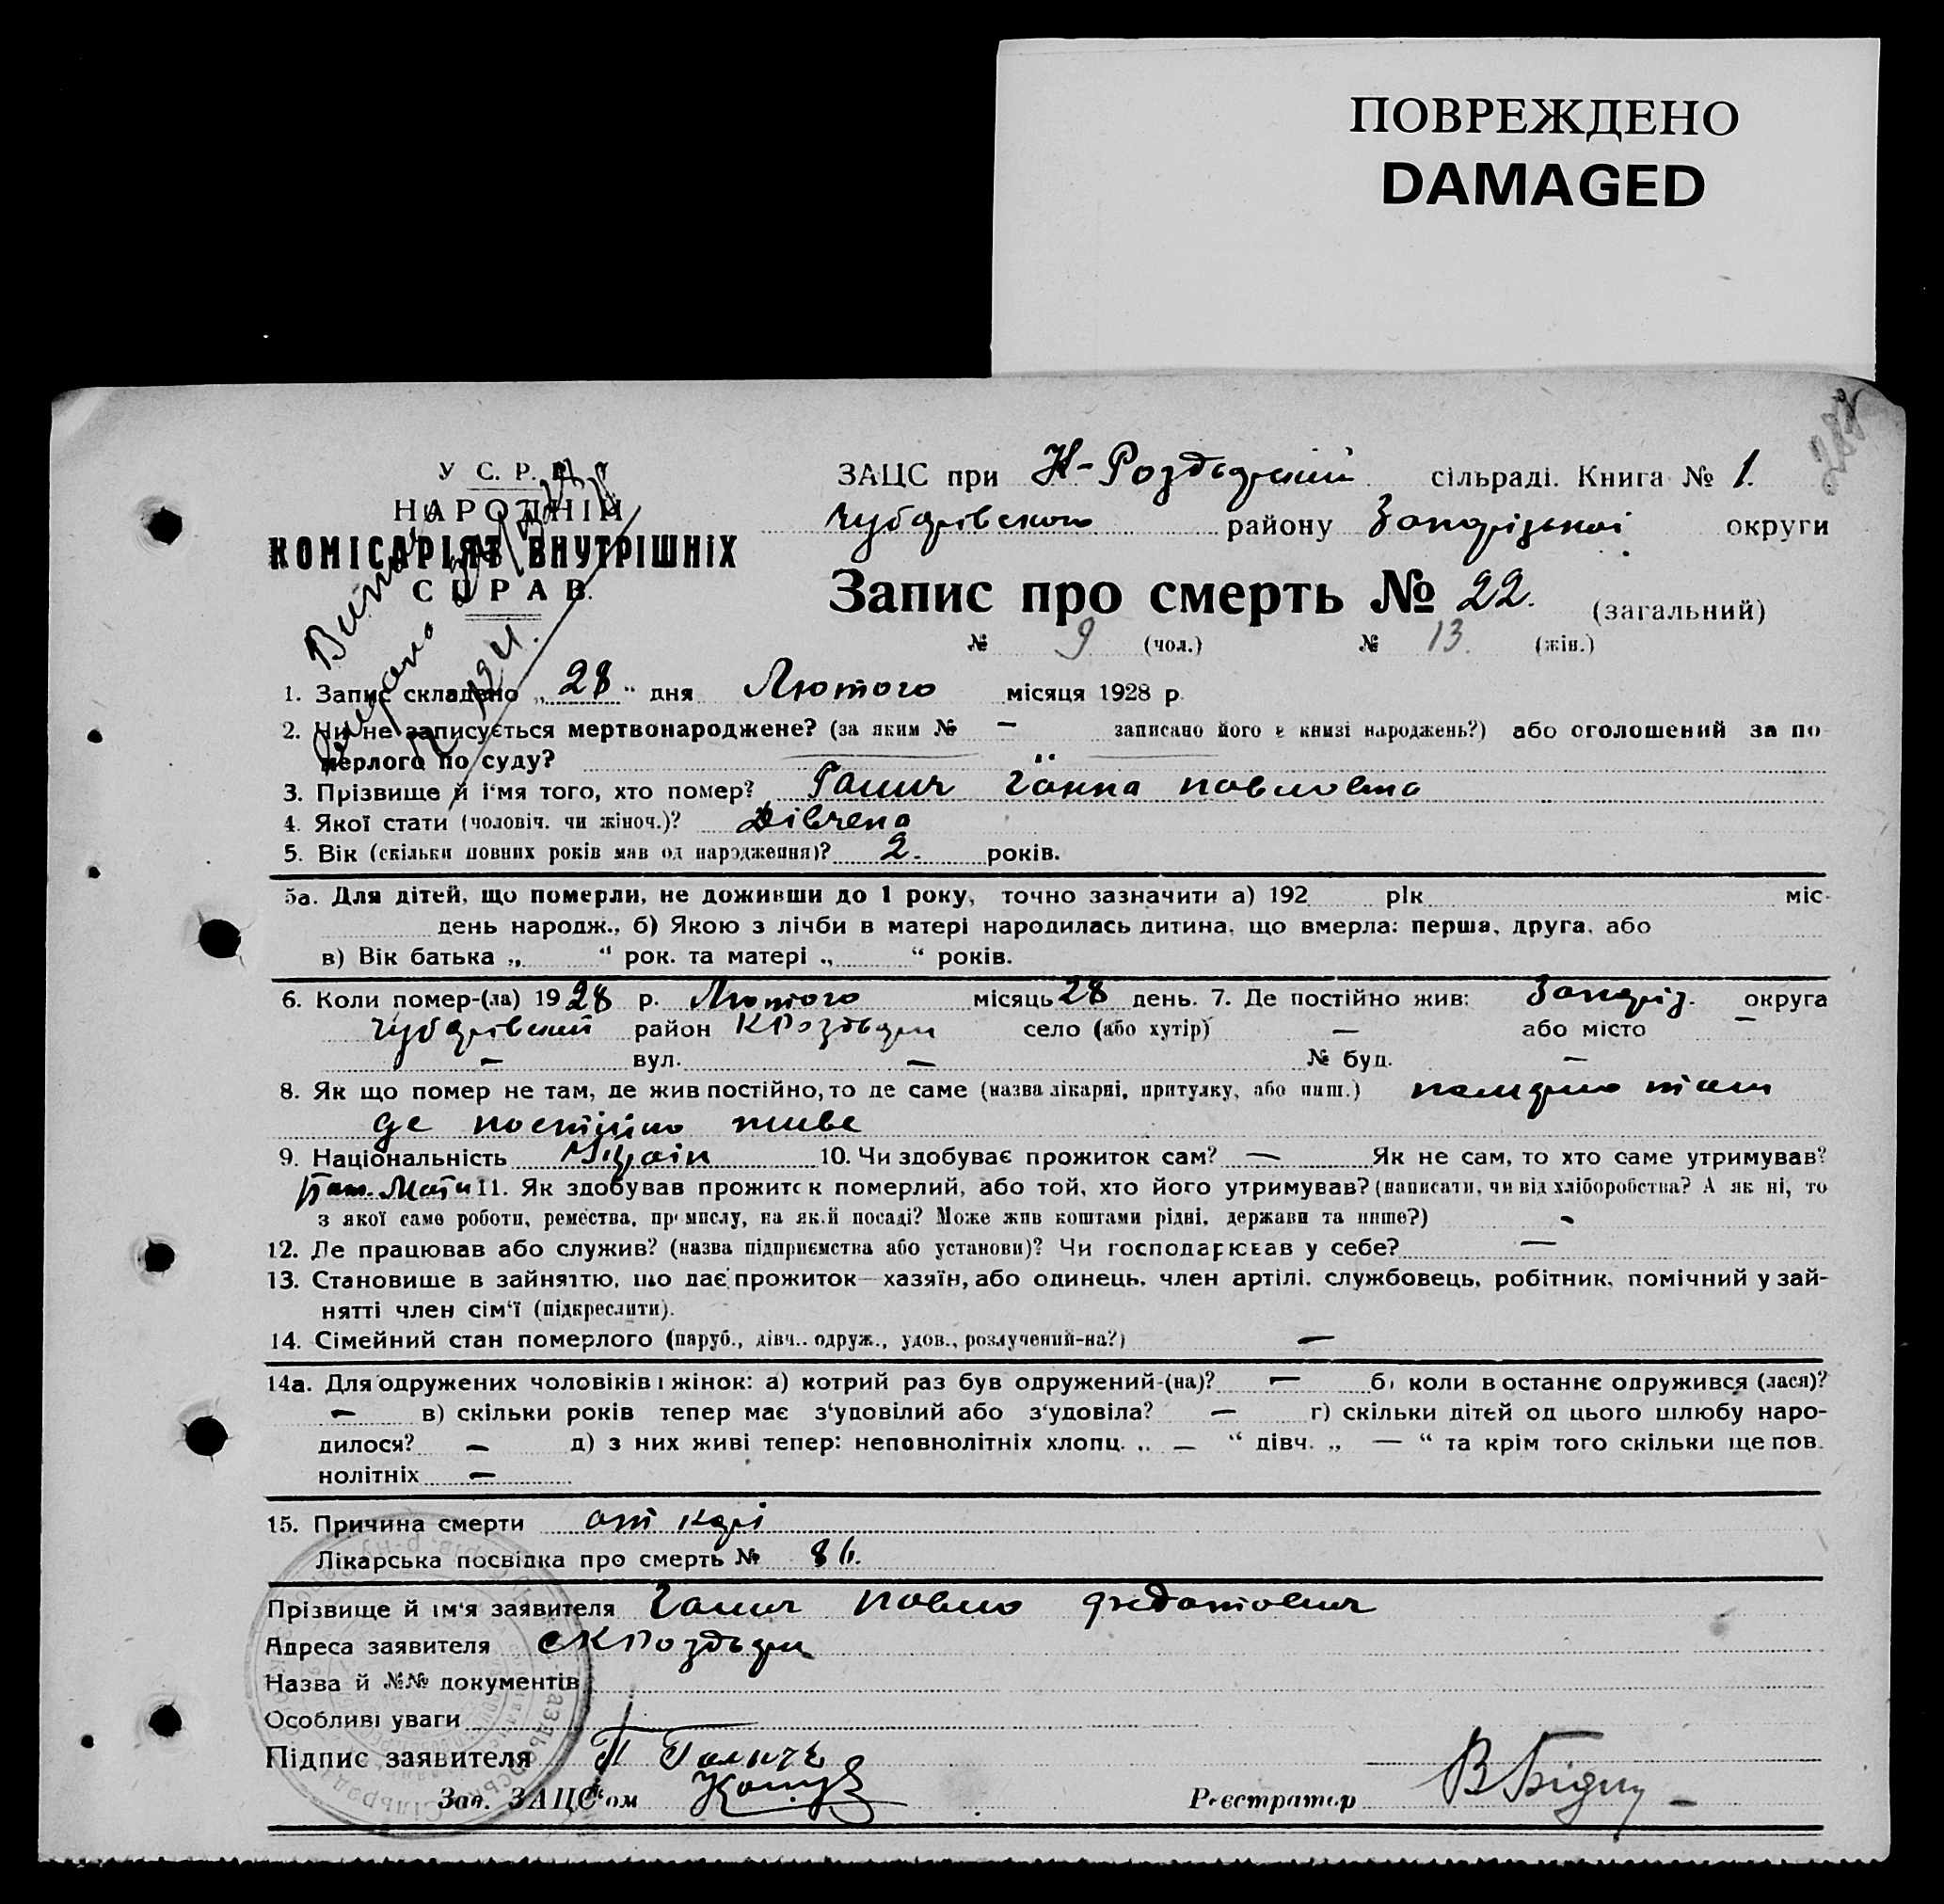 ПОВРЕЖДЕНО
DAMAGED
У С. Р. Р.
НАРОДНІЙ
КОМІСАРІЯТ ВНУТРІШНІХ
СПРАВ.
ЗАЦС при К-Роздорській сільраді. Книга № 1.
Чубарівского району Запорізької округи
Запис про смерть № 22. (загальний)
№ 9 (чол.) № 13. (жін.)
1. Запис складено „28“ дня Лютого місяця 1928 р.
2. Чи не записується мертвонароджене? (за яким № — записано його в книзі народжень?) або оголошений за по
мерлого по суду?
3. Прізвище й і'мя того, хто помер? Галич Ганна павловна
4. Якої стати (чоловіч. чи жіноч.)? Дівчена
5. Вік (скільки повних років мав од народження)? 2. років.
5а. Для дітей, що померли, не доживши до 1 року, точно зазначити а) 192 рік міс-
день народж., б) Якою з лічби в матері народилась дитина, що вмерла: перша, друга, або
в) Вік батька „ “ рок. та матері „ “ років.
6. Коли помер-(ла) 1928 р. Лютого місяць 28 день. 7. Де постійно жив: Запоріз. округа
Чубарівский район КРоздори село (або хутір) — або місто —
— вул. — № буд. —
8. Як що помер не там, де жив постійно, то де саме (назва лікарні, притулку, або инш.) помарло там
де постійно живе
9. Національність Украін 10. Чи здобуває прожиток сам? — Як не сам, то хто саме утримував?
Бат. Мати 11. Як здобував прожиток померлий, або той, хто його утримував? (написати, чи від хліборобства? А як ні, то
з якої саме роботи, ремества, промислу, на якій посаді? Може жив коштами рідні, держави та инше?) -
12. Де працював або служив? (назва підприємства або установи)? Чи господарював у себе? —
13. Становище в зайняттю, що дає прожиток—хазяїн, або одинець, член артілі, службовець, робітник, помічний у зай-
нятті член сім'ї (підкреслити).
14. Сімейний стан померлого (паруб., дівч.. одруж., удов., розлучений-на?) —
14а. Для одружених чоловіків і жінок: а) котрий раз був одружений-(на)? — б) коли востаннє одружився (лася)?
— в) скільки років тепер має з'удовілий або з'удовіла? — г) скільки дітей од цього шлюбу наро-
дилося? — д) з них живі тепер: неповнолітніх хлопц. „ — “ дівч. „ — “ та крім того скільки ще пов.
нолітніх —
15. Причина смерти от корі
Лікарська посвідка про смерть №
Прізвище й ім'я заявителя Галич павло федотович
Адреса заявителя с КРоздори
Назва й №№ документів
Особливі уваги
Підпис заявителя П Галичь
Зав. ЗАЦС'ом Реєстратор